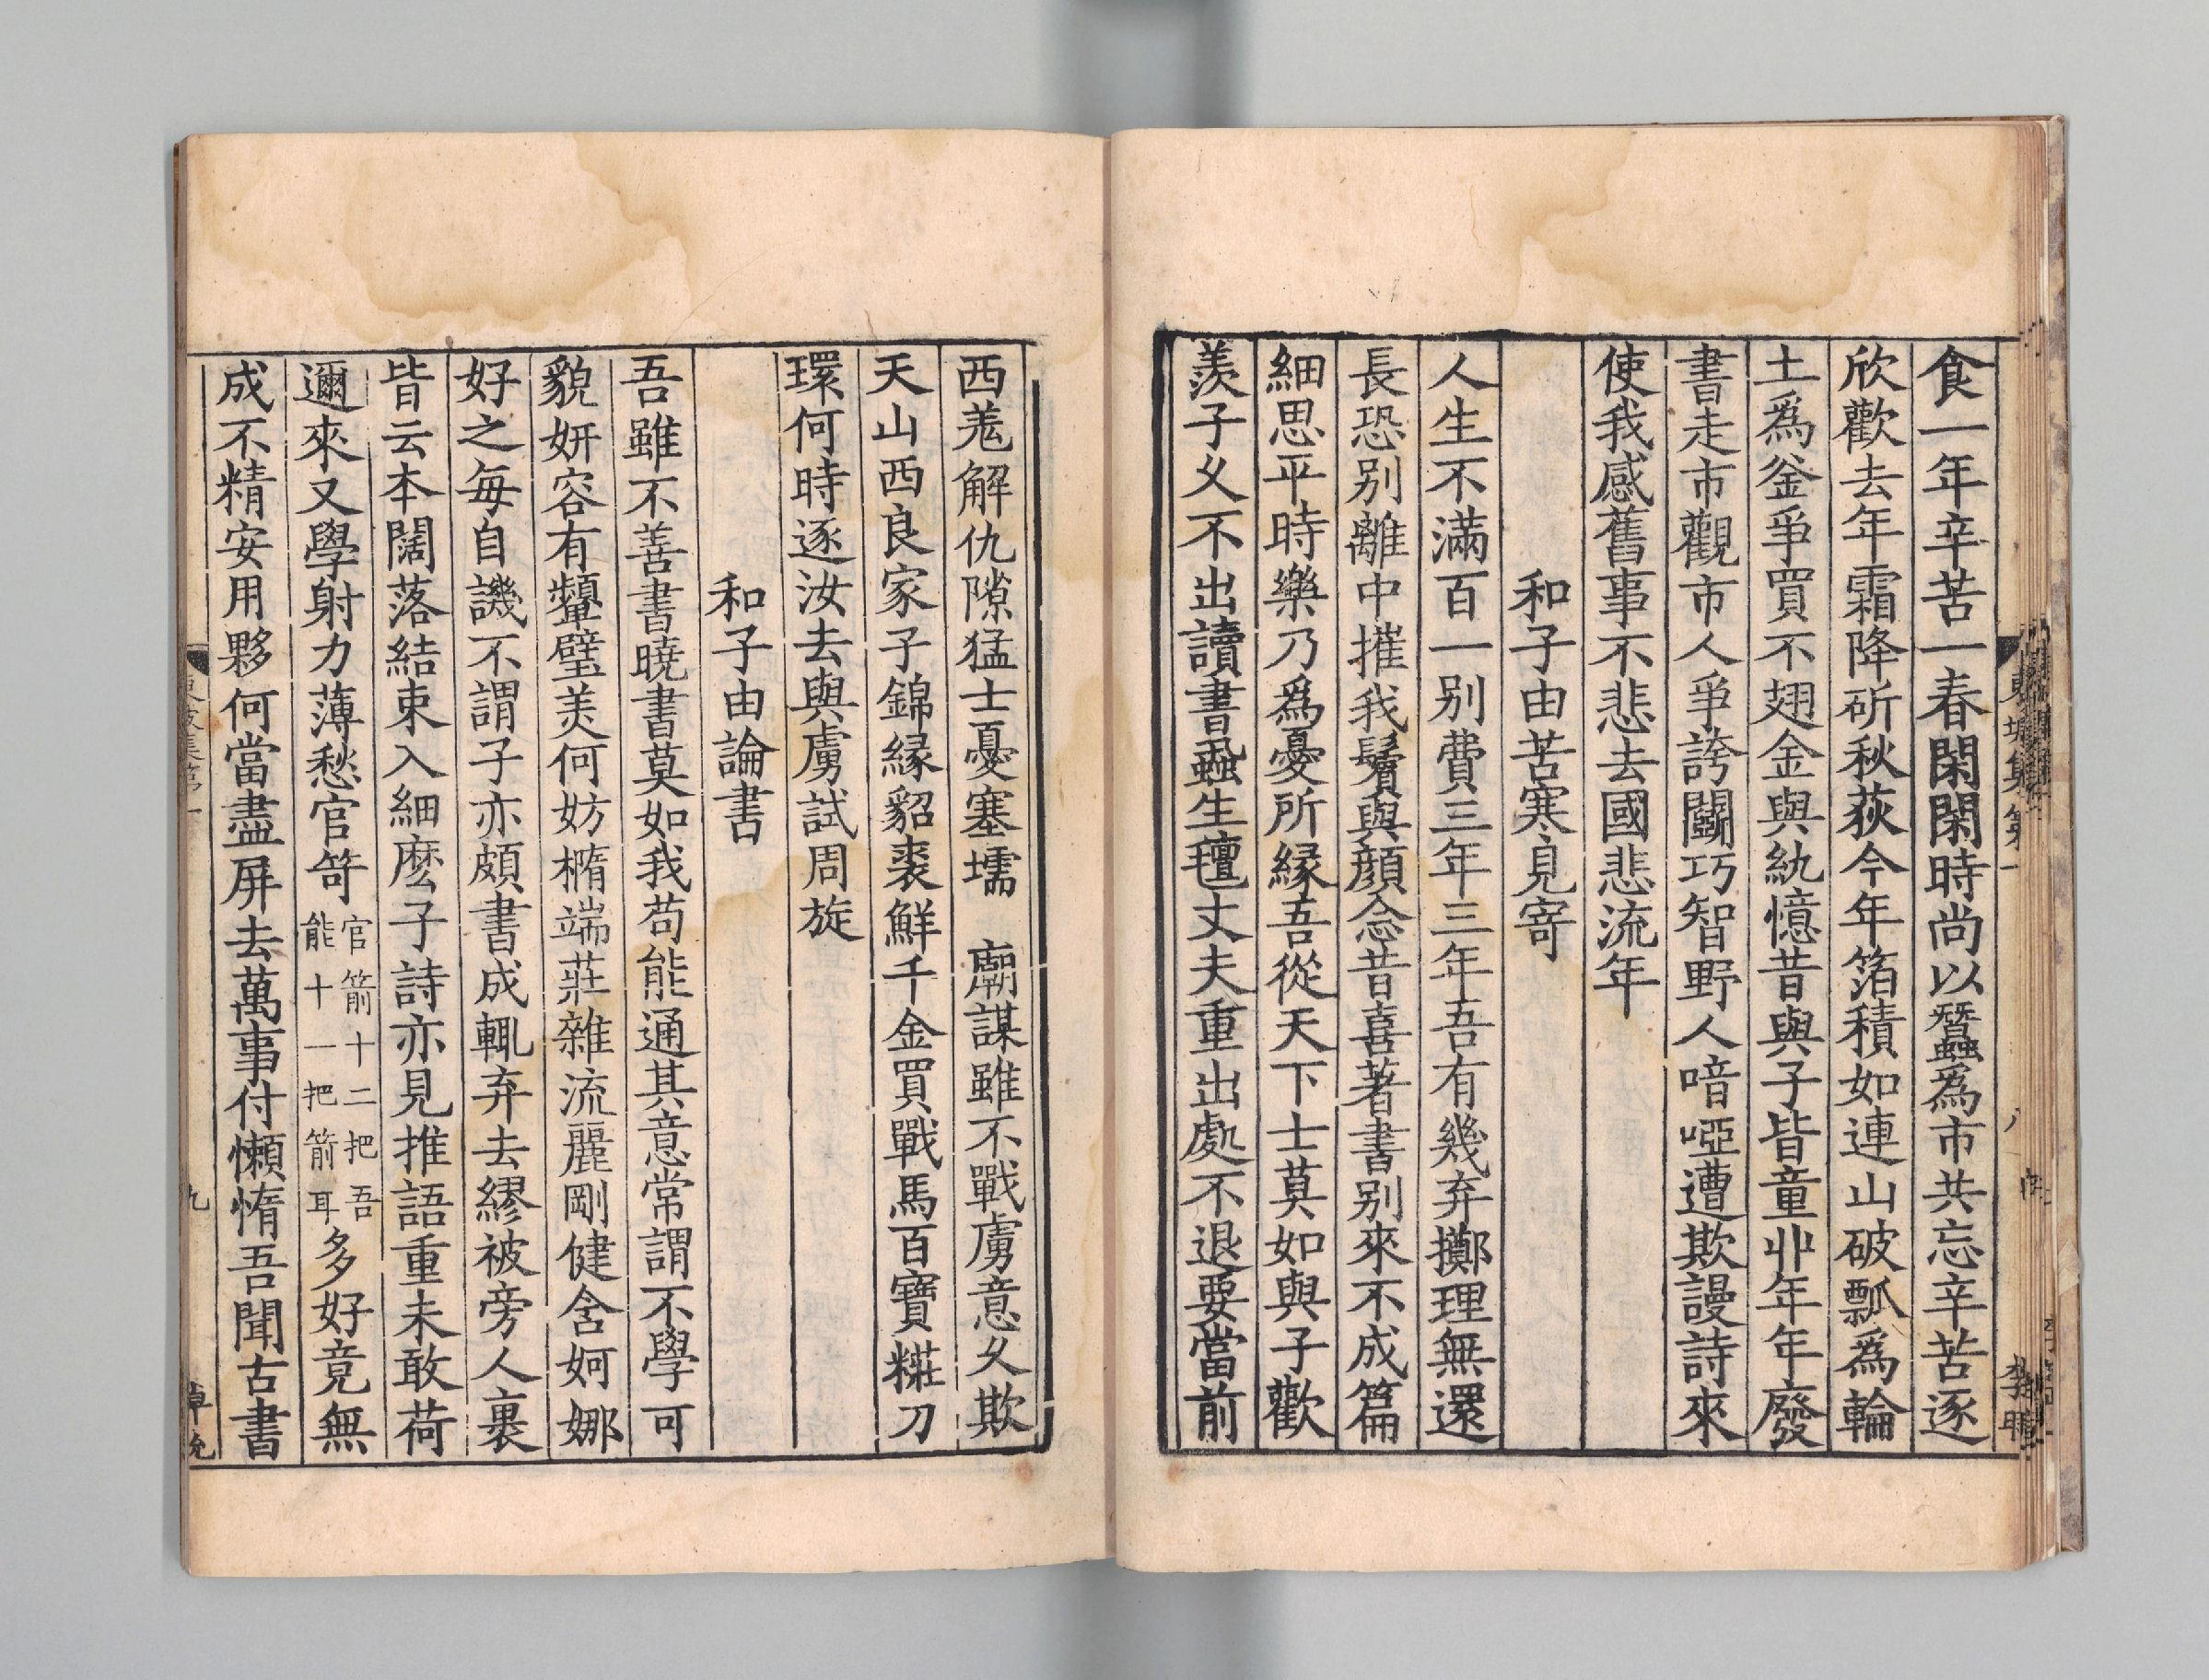 食一年辛苦一春閑閑時尚以蠶爲市共忘辛苦逐
欣歡去年霜降斫秋荻今年箔積如連山破瓢爲輪
土爲釜爭買不翅金與紈憶昔與子皆童丱年年廢
書走市觀市人爭誇鬬巧智野人喑啞遭欺謾詩來
使我感舊事不悲去國悲流年
和子由苦寒見寄
人生不滿百一别費三年三年吾有幾弃擲理無還
長恐别離中摧我鬢與顔念昔喜著書别來不成篇
細思平時樂乃爲憂所縁吾從天下士莫如與子歡
羨子乆不出讀書蝨生氊丈夫重出處不退要當前
西羗解仇隙猛士憂塞壖 廟謀雖不戰虜意乆欺
天山西良家子錦縁貂裘鮮千金買戰馬百寶糚刀
環何時逐汝去與虜試周旋
和子由論書
吾雖不善書曉書莫如我苟能通其意常謂不學可
貌妍容有顰璧美何妨橢端莊雜流麗剛健含婀娜
好之每自譏不謂子亦頗書成輒弃去繆被旁人裹
皆云本闊落結束入細麽子詩亦見推語重未敢荷
邇來又學射力薄愁官笴官箭十二把吾能十一把箭耳多好竟無
成不精安用夥何當盡屏去萬事付懶惰吾聞古書
九